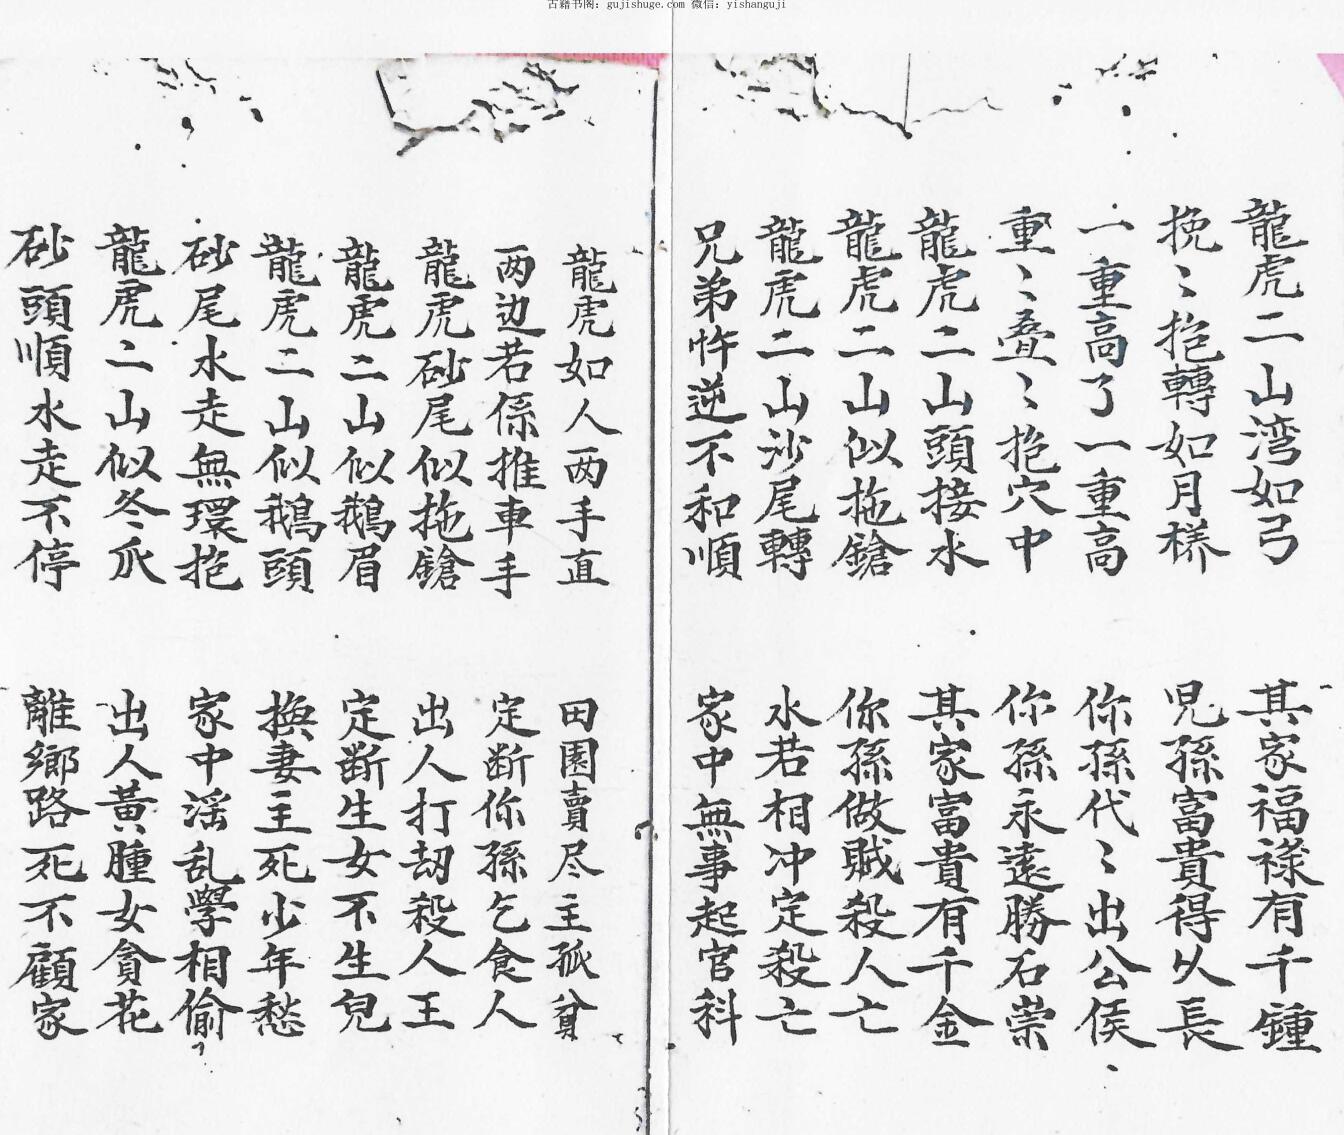 古籍书阁：gujishuge.com 微信：yishanguji
龍虎二山湾如弓 其家福祿有千鍾
挽〻抱轉如月樣 児孫富貴得久長
一重高了一重高 你孫代〻出公侯
重〻叠〻抱穴中 你孫永遠勝石崇
龍虎二山頭接水 其家富貴有千金
龍虎二山似拖鎗 你孫做賊殺人亡
龍虎二山沙尾轉 水若相冲定殺亡
兄弟忤逆不和順 家中無事起官科
龍虎如人两手直 田園賣尽主孤貧
两边若係推車手 定断你孫乞食人
龍虎砂尾似拖鎗 出人打刼殺人王
龍虎二山似鵝眉 定断生女不生兒
龍虎二山似鵝頭 换妻主死少年愁
砂尾水走無環抱 家中滛乱學相偷
龍虎二山似冬瓜 出人黃腫女貪花
砂頭順水走不停 離鄉路死不顧家